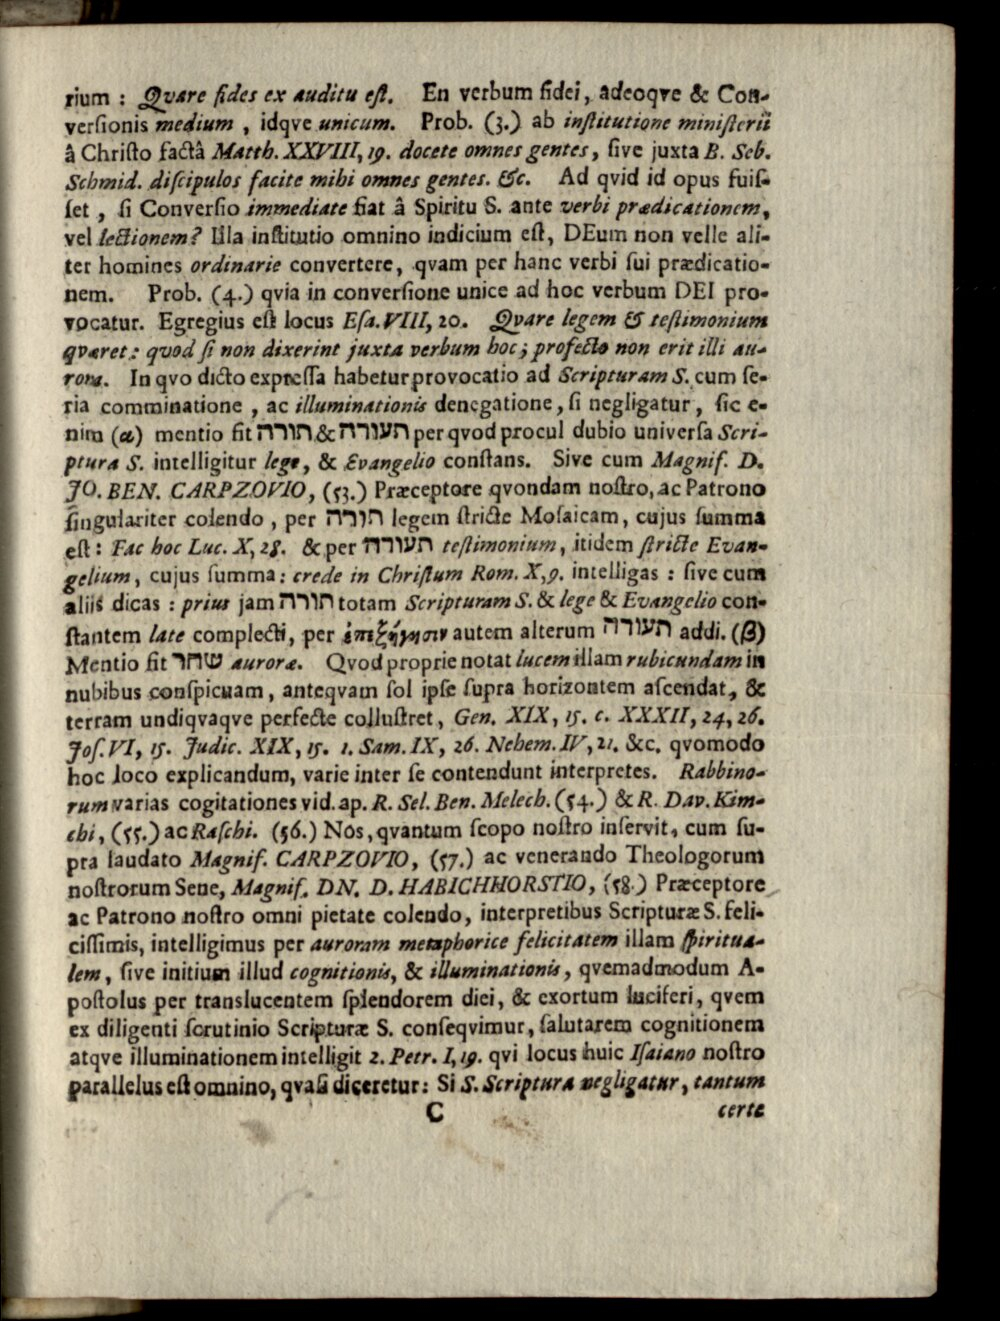 rium : Qvare fides ex auditu eſt. En verbum fidei, adeoqve & Con-
verſionis medium , idqve unicum. Prob. (3.) ab inſtitutione miniſterii
â Chriſto factâ Matth. XXVIII, 19. docete omnes gentes, ſive juxta B. Seb.
Schmid. diſcipulos facite mihi omnes gentes. &c. Ad qvid id opus fuiſ-
ſet , ſi Converſio immediate fiat â Spiritu S. ante verbi prædicationem,
vel lectionem? Illa inſtitutio omnino indicium eſt, DEum non velle ali-
ter homines ordinarie convertere, qvam per hanc verbi ſui prædicatio-
nem. Prob. (4.) qvia in converſione unice ad hoc verbum DEI pro-
vocatur. Egregius eſt locus Eſa. VIII, 20. Qvare legem & teſtimonium
qværet: quod ſi non dixerint juxta verbum hoc; profecto non erit illi au-
rora. In qvo dicto expreſſa habetur provocatio ad Scripturam S. cum ſe-
ria comminatione , ac illuminationis denegatione, ſi negligatur, ſic e-
nim (α) mentio fit תורה & תעורה per qvod procul dubio univerſa Scri-
ptura S. intelligitur lege, & Evangelio conſtans. Sive cum Magnif. D.
JO. BEN. CARPZOVIO, (53.) Præceptore qvondam noſtro, ac Patrono
ſingulariter colendo , per תורה legem ſtricte Moſaicam, cujus ſumma
eſt: Fac hoc Luc. X, 28. & per תעורה teſtimonium, itidem ſtricte Evan-
gelium, cujus ſumma: crede in Chriſtum Rom. X, 9. intelligas : ſive cum
aliis dicas : prius jam תורה totam Scripturam S. & lege & Evangelio con-
ſtantem late complecti, per ἐπεξήγησιν autem alterum תעורה addi. (β)
Mentio fit שחר auroræ. Qvod proprie notat lucem illam rubicundam in
nubibus conſpicuam, anteqvam ſol ipſe ſupra horizontem aſcendat, &
terram undiqvaqve perfecte colluſtret, Gen. XIX, 15. c. XXXII, 24, 26.
Joſ. VI, 15. Judic. XIX, 15. 1. Sam. IX, 26. Nehem. IV, 21. &c. qvomodo
hoc loco explicandum, varie inter ſe contendunt interpretes. Rabbino-
rum varias cogitationes vid. ap. R. Sel. Ben. Melech. (54.) & R. Dav. Kim-
chi, (55.) ac Raſchi. (56.) Nos, qvantum ſcopo noſtro inſervit, cum ſu-
pra laudato Magnif. CARPZOVIO, (57.) ac venerando Theologorum
noſtrorum Sene, Magnif. DN. D. HABICHHORSTIO, (58.) Præceptore
ac Patrono noſtro omni pietate colendo, interpretibus Scripturæ S. feli-
ciſſimis, intelligimus per auroram metaphorice felicitatem illam ſpiritua-
lem, ſive initium illud cognitionis, & illuminationis, qvemadmodum A-
poſtolus per translucentem ſplendorem diei, & exortum luciferi, qvem
ex diligenti ſcrutinio Scripturæ S. conſeqvimur, ſalutarem cognitionem
atqve illuminationem intelligit 2. Petr. I, 19. qvi locus huic Iſaiano noſtro
parallelus eſt omnino, qvaſi diceretur: Si S. Scriptura negligatur, tantum
C certe